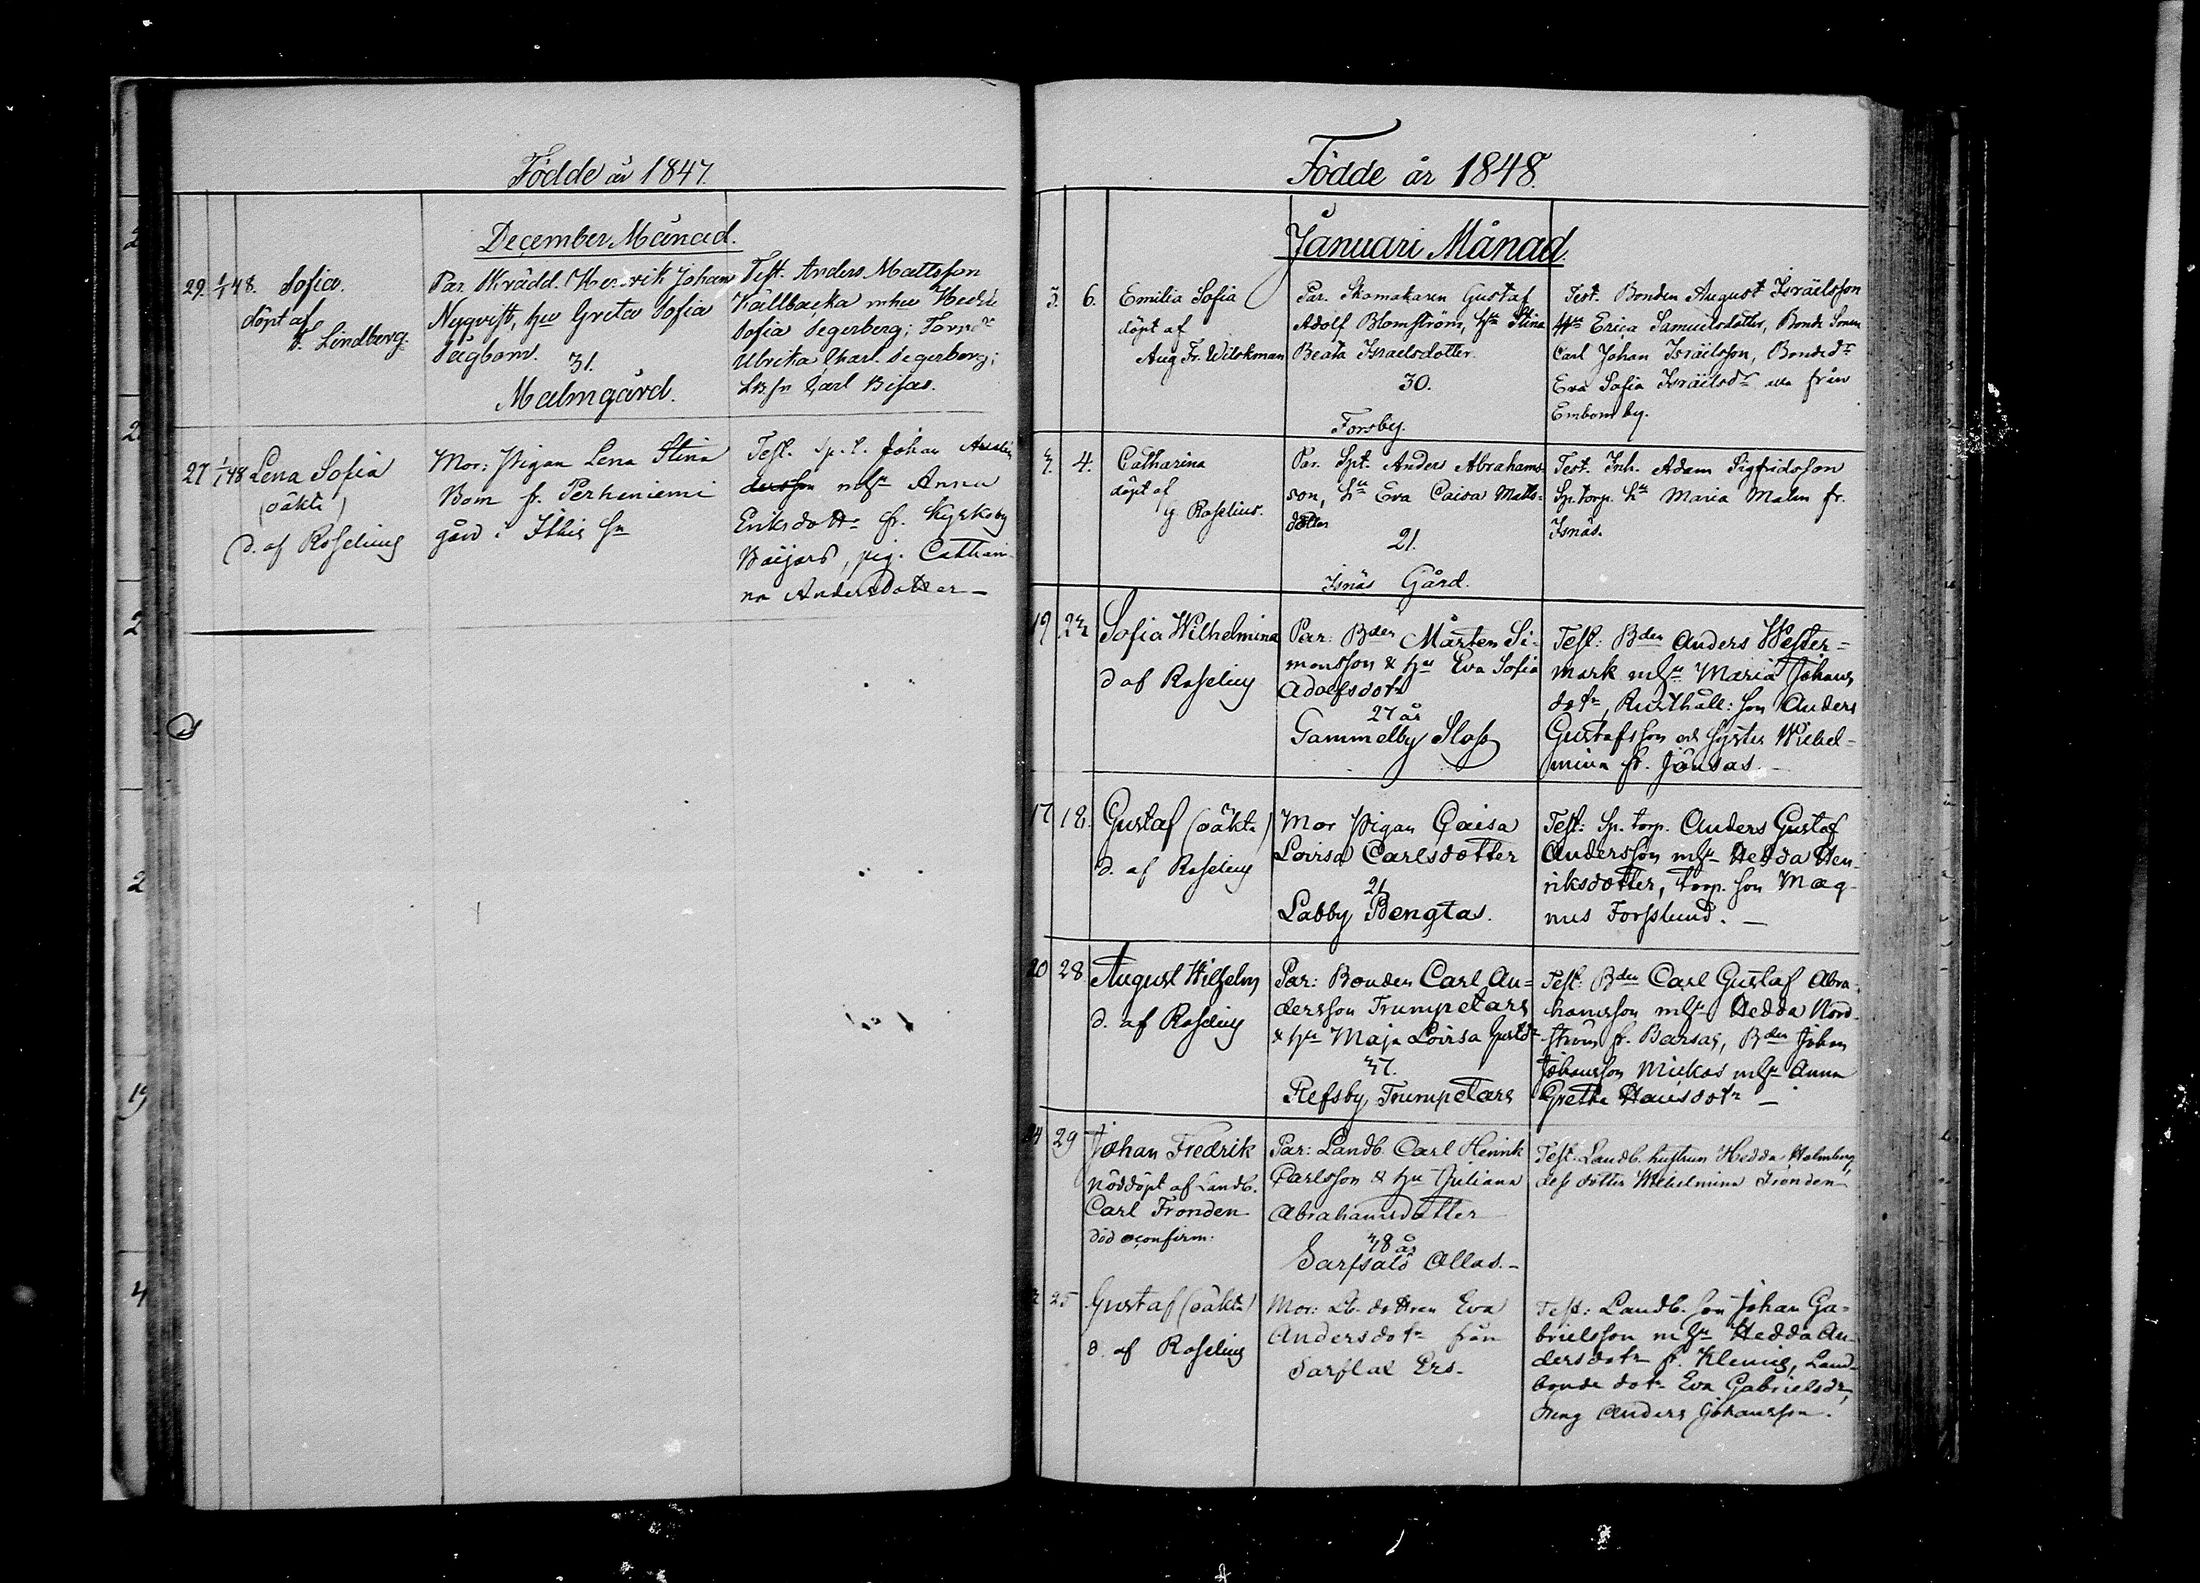 Födde år 1847.
December Månad.
29. 1/1 48. Sofia.
döpt af
Lindberg.
Par. Skrädd. Henrik Johan
Nyqvist, hu Greta Sofia
Sågbom.
31.
Malmgård.
Test. Anders Mattsson
Källbacka mhu Hedda
Sofia Segerberg; Torpdr
Ulrika Charl. Segerberg;
Carl Bisas.
27 1/1 48 Lena Sofia
(oäkta)
d. af Roselius
Mor: Pigan Lena Stina
Bom fr. Perheniemi
gård i Ithis sn
Test. Sp.t. Johan
dersson mhu Anna
Eriksdottr fr. Kyrkoby
Böijars, pig. Cathari-
na Andersdotter –
Födde år 1848.
Januari Månad.
3. 6. Emilia Sofia
döpt af
Aug. Fr. Wilskman
Par. Skomakaren Gustaf
Adolf Blomström, hu Stina
Beata Israelsdotter.
30.
Forsby.
Test. Bonden August Israëlsson
Hu Erica Samuelsdotter, Bonde Sonen
Carl Johan Israëlsson, Bondedr
Eva Sofia Israëlsdr alla från
Embom by.
3. 4. Catharina
döpt af
G. Roselius.
Par. Spt. Anders Abrahams-
son, hu Eva Caisa Matts-
dotter
21.
Isnäs Gård.
Test. Inh. Adam Sigfridsson
Sp.torp. hu Maria Malm fr.
Isnäs.
19 23 Sofia Wilhelmina
d af Roselius
Par: Bden Mårten Si-
monsson & hu Eva Sofia
Adolfsdotr
27 år
Gammelby Sloss
Test: Bden Anders Wester=
mark mhu Maria Johans
dotr, Rusthåll: son Anders
Gustafsson och syster Wilhel=
mina fr. Jönsas. –
17 18. Gustaf (oäkta)
d. af Roselius
Mor Pigan Caisa
Lovisa Carlsdotter
21
Labby Bengtas.
Test: Sp. torp. Anders Gustaf
Andersson mhu Hedda Hen-
riksdotter, torp. son Mag-
nus Forsslund. –
20 28 August Wilhelm
d. af Roselius
Par: Bonden Carl An=
dersson Trumpetars
& hu Maja Lovisa Gustdr
37.
Refsby, Trumpetars
Test: Bden Carl Gustaf Abra-
hamsson mhu Hedda Nord-
ström fr. Barsas, Bden Johan
Johansson Mickos mhu Anna
Gretha Hansdotr –
24 29 Johan Fredrik
nöddöpt af Landb.
Carl Fronden
död oconfirm:
Par: Landb. Carl Henrik
Carlsson & hu Juliana
Abrahamsdotter
38 år
Sarfsalö Ollas. –
Test. Landb. hustrun Hedda Holmberg,
dess dotter Wilhelmina Fronden
25 Gustaf (oäkta)
d. af Roselius
Mor: Lb. dottren Eva
Andersdotr från
Sarflax Ers.
Test: Landb. son Johan Ga=
brielsson mhu Hedda An-
dersdotr fr. Klemis, Land-
bonde dotr Eva Gabrielsdr,
dreng Anders Johansson.